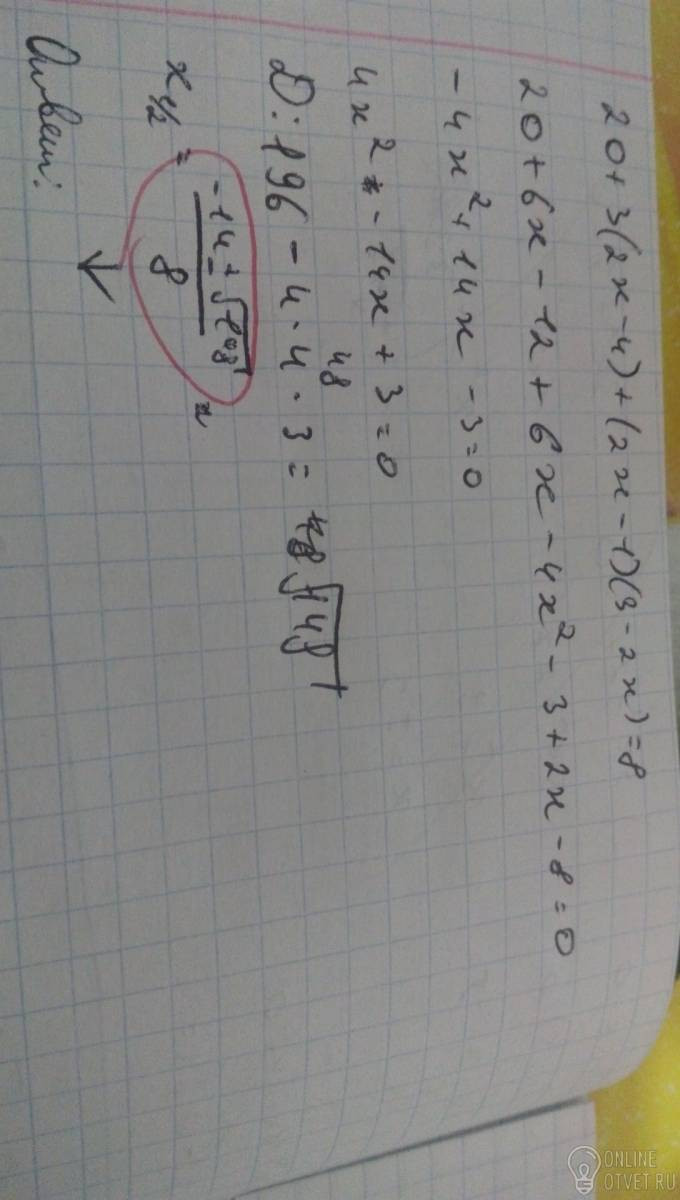 20+3(2x-4)+(2x-1)(3-2x)=8
20+6x-12+6x-4x²-3+2x-8=0
-4x²+14x-3=0
4x²-14x+3=0
48
D:196-4·4·3= √148
x₁/₂ = (-14±√148)/8 =
Ответ:
ONLINE
OTVET.RU